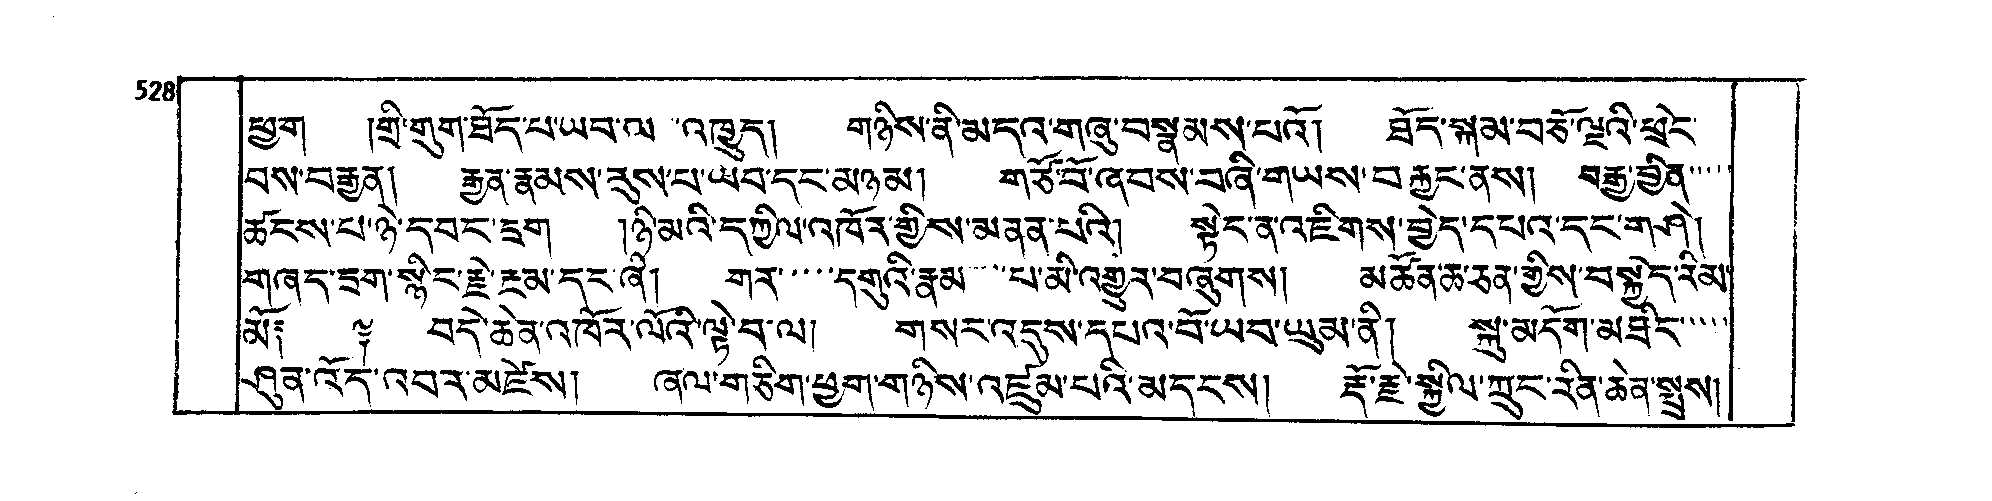 528
ཕྱག །གྲི་གུག་ཐོད་པ་ཡབ་ལ་འཁྱུད། གཉིས་ནི་མདའ་གཞུ་བསྣམས་པའོ། ཐོད་སྐམ་བཅོ་ལྔའི་ཕྲེང་
བས་བརྒྱན། རྒྱན་རྣམས་རུས་པ་ཡབ་དང་མཉམ། གཙོ་བོ་ཞབས་བཞི་གཡས་བརྐྱང་ནས། བརྒྱ་བྱིན་
ཚངས་པ་ཉེ་དབང་དྲག །ཉི་མའི་དཀྱིལ་འཁོར་གྱིས་མནན་པའི། སྟེང་ན་འཇིགས་བྱེད་དཔའ་དང་གཤེ།
གཞད་དྲག་སྙིང་རྗེ་རྔམ་དང་ཞི། གར་དགུའི་རྣམ་པ་མི་འགྱུར་བཞུགས། མཚོན་ཆ་ཅན་གྱིས་བསྐྱེད་རིམ་
མོ༔ ༔ བདེ་ཆེན་འཁོར་ལོའི་ལྟེ་བ་ལ། གསང་འདུས་དཔའ་བོ་ཡབ་ཡུམ་ནི། སྐུ་མདོག་མཐིང་
ཤུན་འོད་འབར་མཛེས། ཞལ་གཅིག་ཕྱག་གཉིས་འཛུམ་པའི་མདངས། རྡོ་རྗེ་སྐྱིལ་ཀྲུང་རིན་ཆེན་སྤྲས།